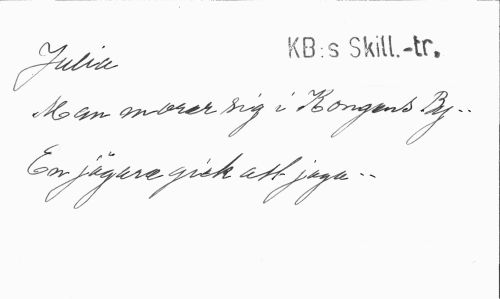 KB:s Skill.-tr.
Julia
Man morer sig i Kongens By..
En jägare gick att jaga --